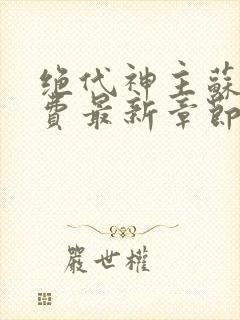 绝代神主蘇
費最新章節
嚴世權